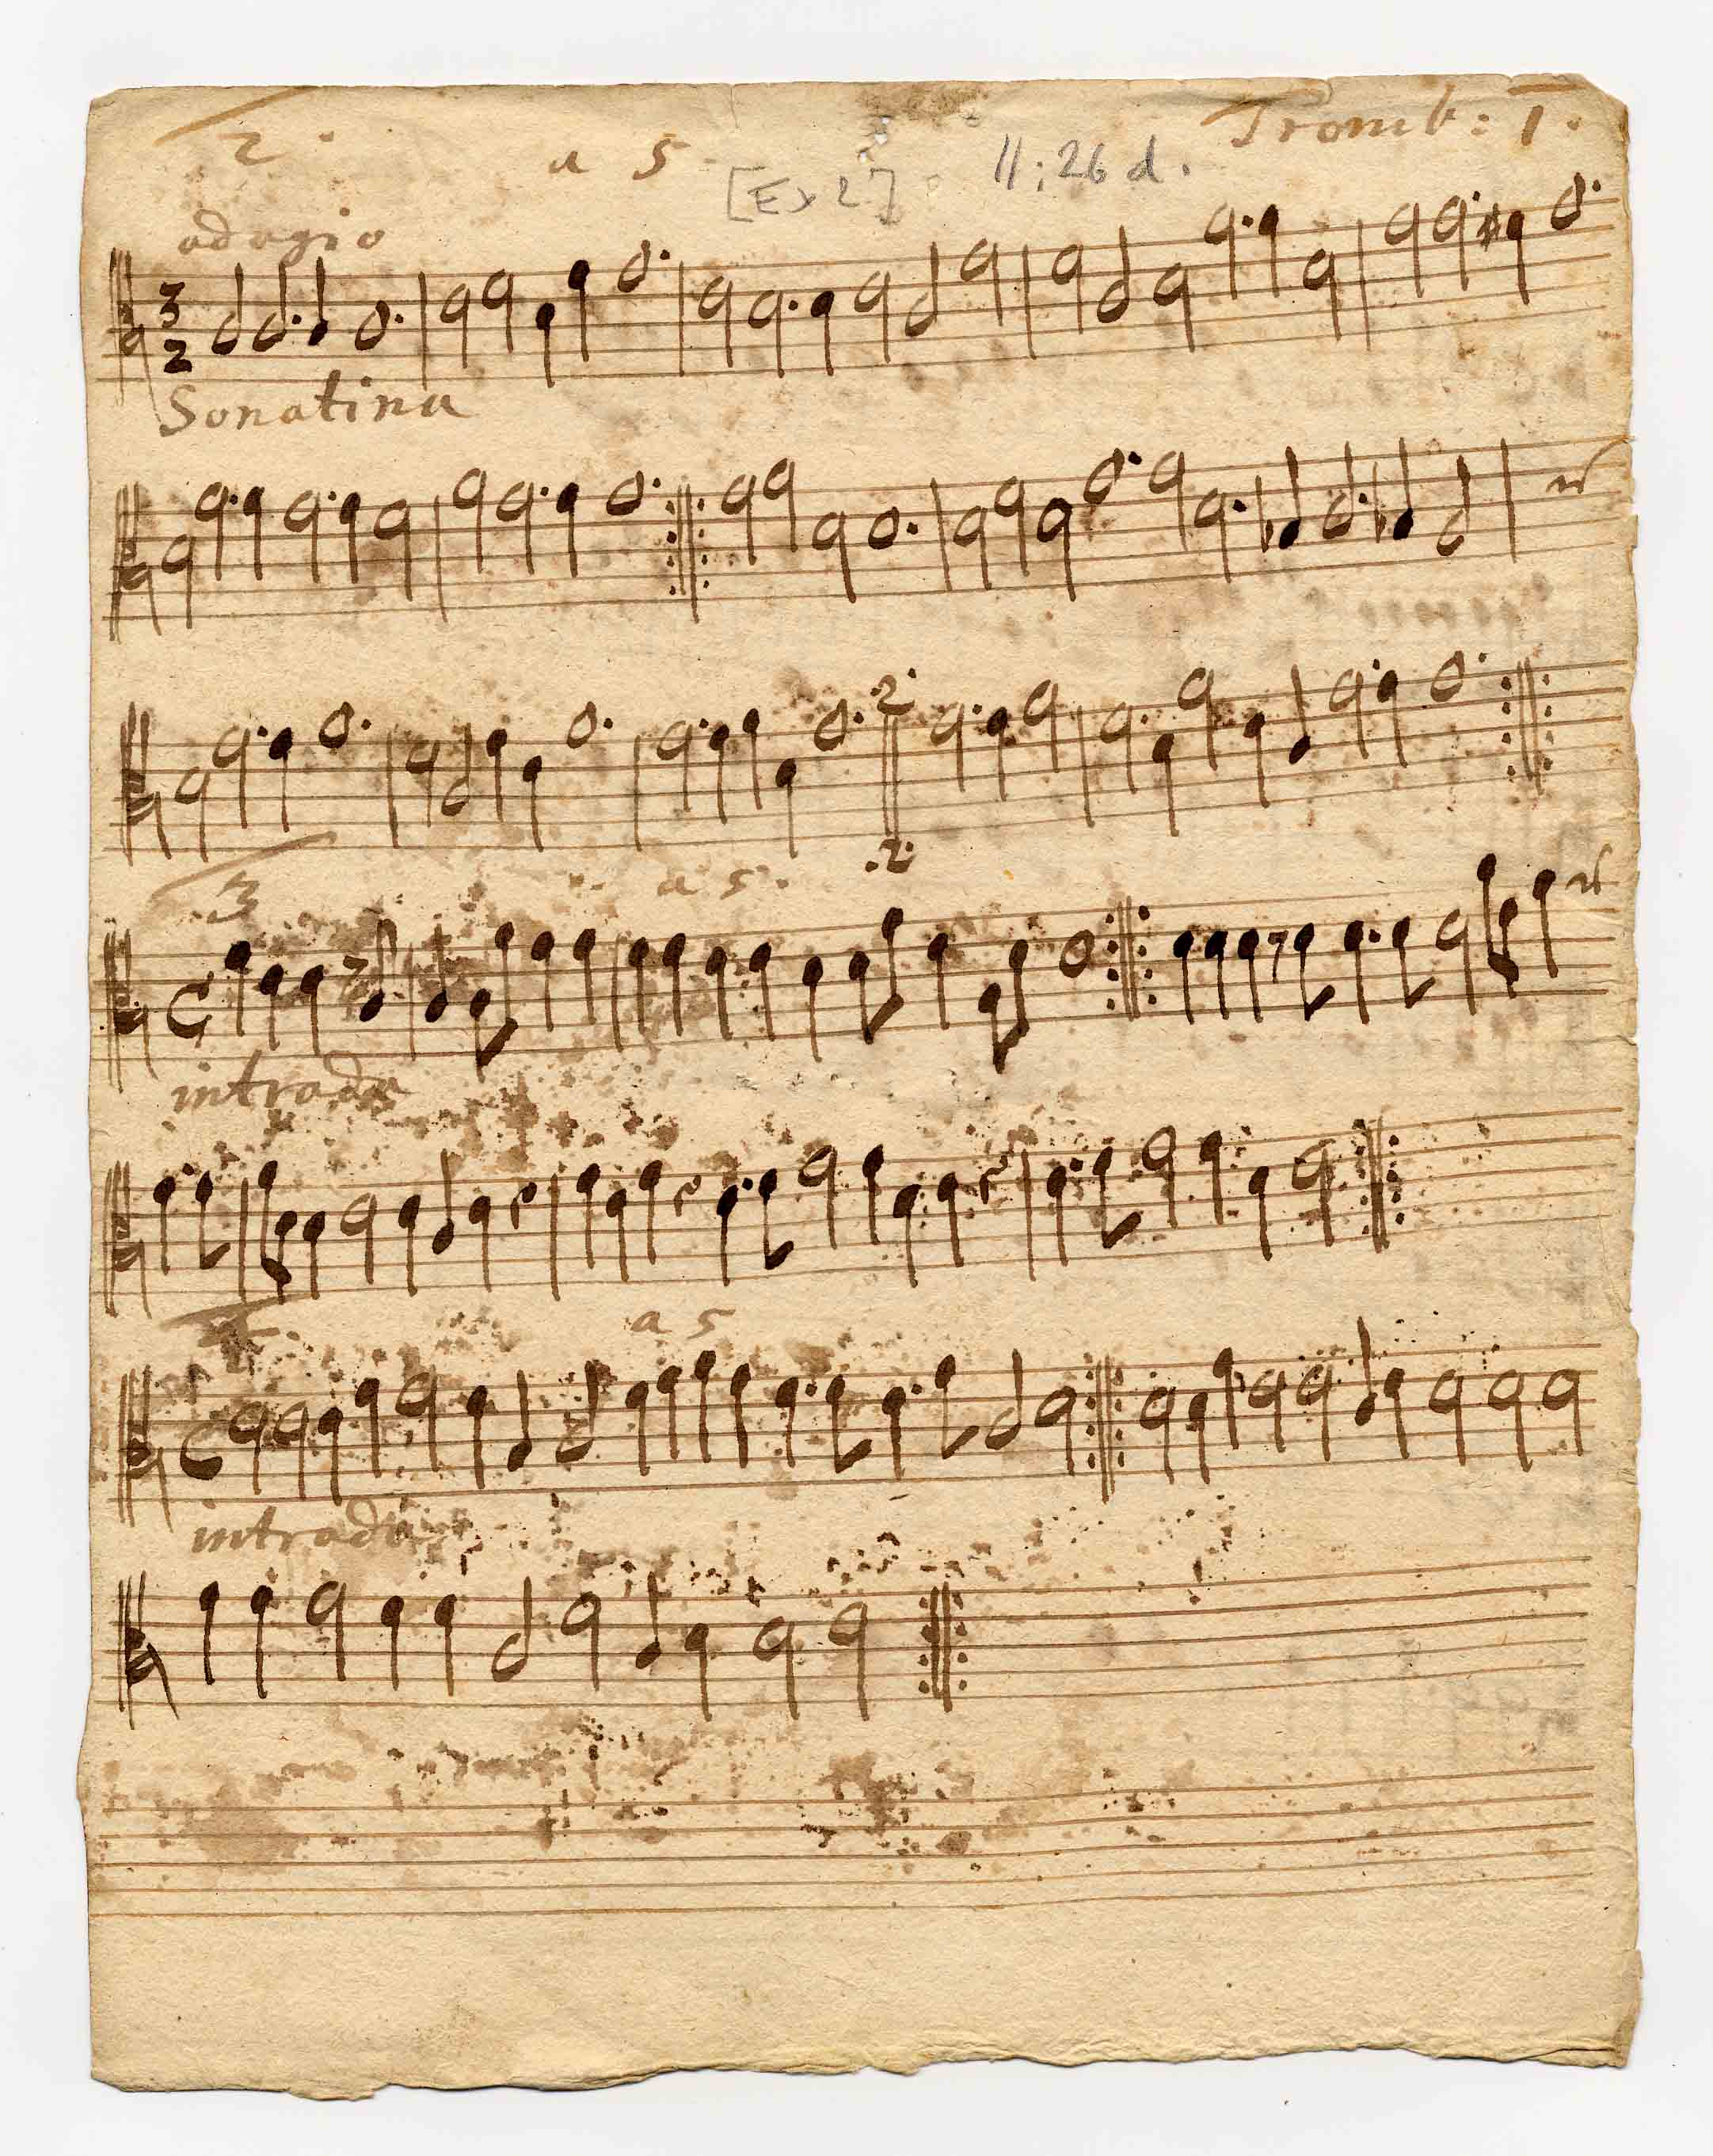 2. a 5. Tromb: 1.
[Ex 2] 11:26 d.
adagio
3
2
Sonatina
.2.
.2.
3 a 5.
intrada
a 5
intrada